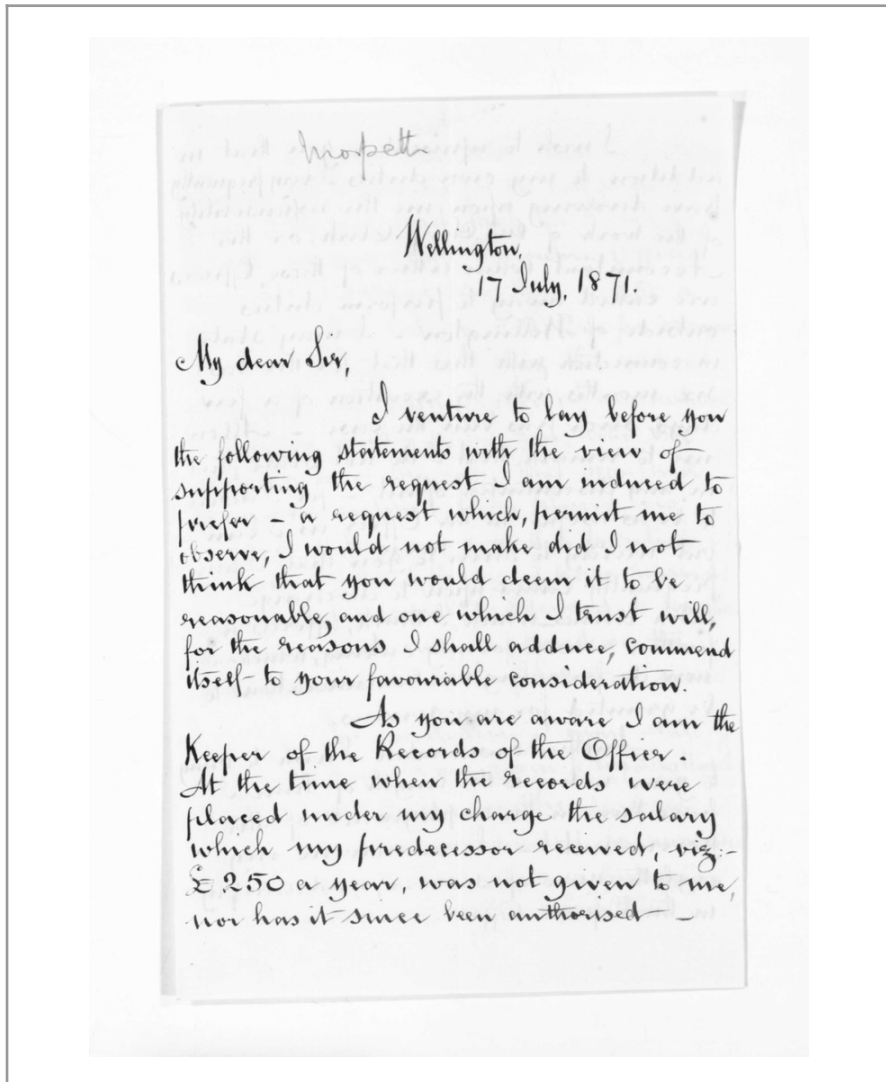 Morpeth
Wellington,
17 July, 1871.
My dear Sir,
I venture to lay before you
the following statements with the view of
supporting the request I am induced to
prefer - a request which, permit me to
observe, I would not make did I not
think that you would deem it to be
reasonable, and one which I trust will,
for the reasons I shall adduce, commend
itself to your favourable consideration.
As you are aware I am the
Keeper of the Records of the Office.
At the time when the records were
placed under my charge the salary
which my predecessor received, viz:-
£250 a year, was not given to me,
nor has it since been authorised -